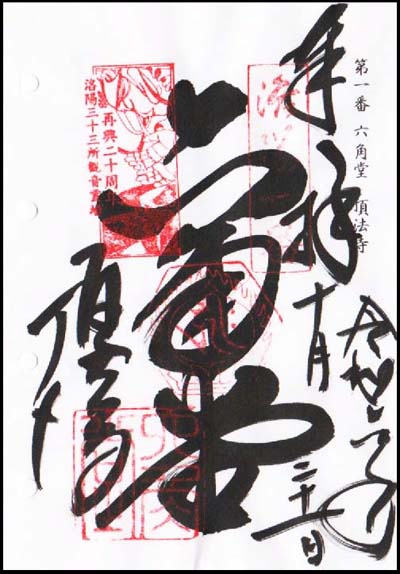 第一番 六角堂 頂法寺
奉拝
令和六年
十月
二十一日
六角堂
頂法寺
再興二十周年
洛陽三十三所観音霊場